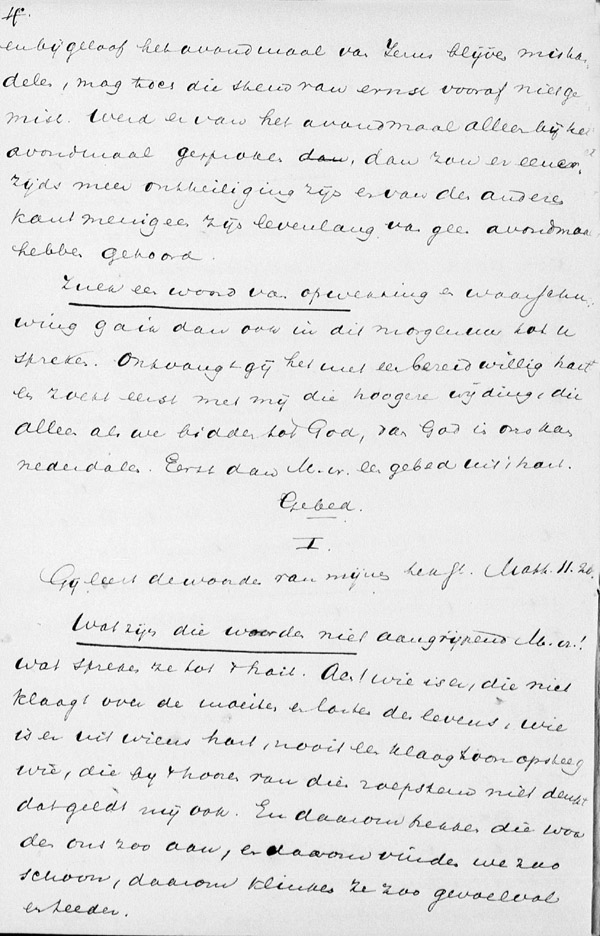 4.
en bijgeloof het avondmaal van Jezus blijven mishan-
delen, mag toch die stem van ernst vooraf niet ge-
mist. Werd er van het avondmaal alleen bij het
avondmaal gesproken dan, dan zou er eener-
zijds meer ontheiliging zijn en van den anderen
kant menigeen zijn levenlang van geen avondmaal
hebben gehoord.
Zulk een woord van opwekking en waarschu-
wing ga ik dan ook in dit morgenuur tot u
spreken. Ontvangt gij het met een bereidwillig hart
en zoekt eerst met mij die hoogere wijding, die
alleen als we bidden tot God, van God in ons kan
nederdalen. Eerst dan M. vr. een gebed uit 't hart.
Gebed.
I.
Gij leest de woorden van mijnen tekst. Matth. 11. 28.
Wat zijn die woorden niet aangrijpend M. vr.!
wat spreken ze tot 't hart. Ach wie is er, die niet
klaagt over de moeiten en lasten des levens, wie
is er uit wiens hart, nooit een klaagtoon opsteeg
wie, die by 't hooren van die roepstem niet denkt
dat geldt mij ook. En daarom hebben die woor
den ons zoo aan, en daarom vinden we ze zoo
schoon, daarom klinken ze zoo gevoelvol
en teeder.